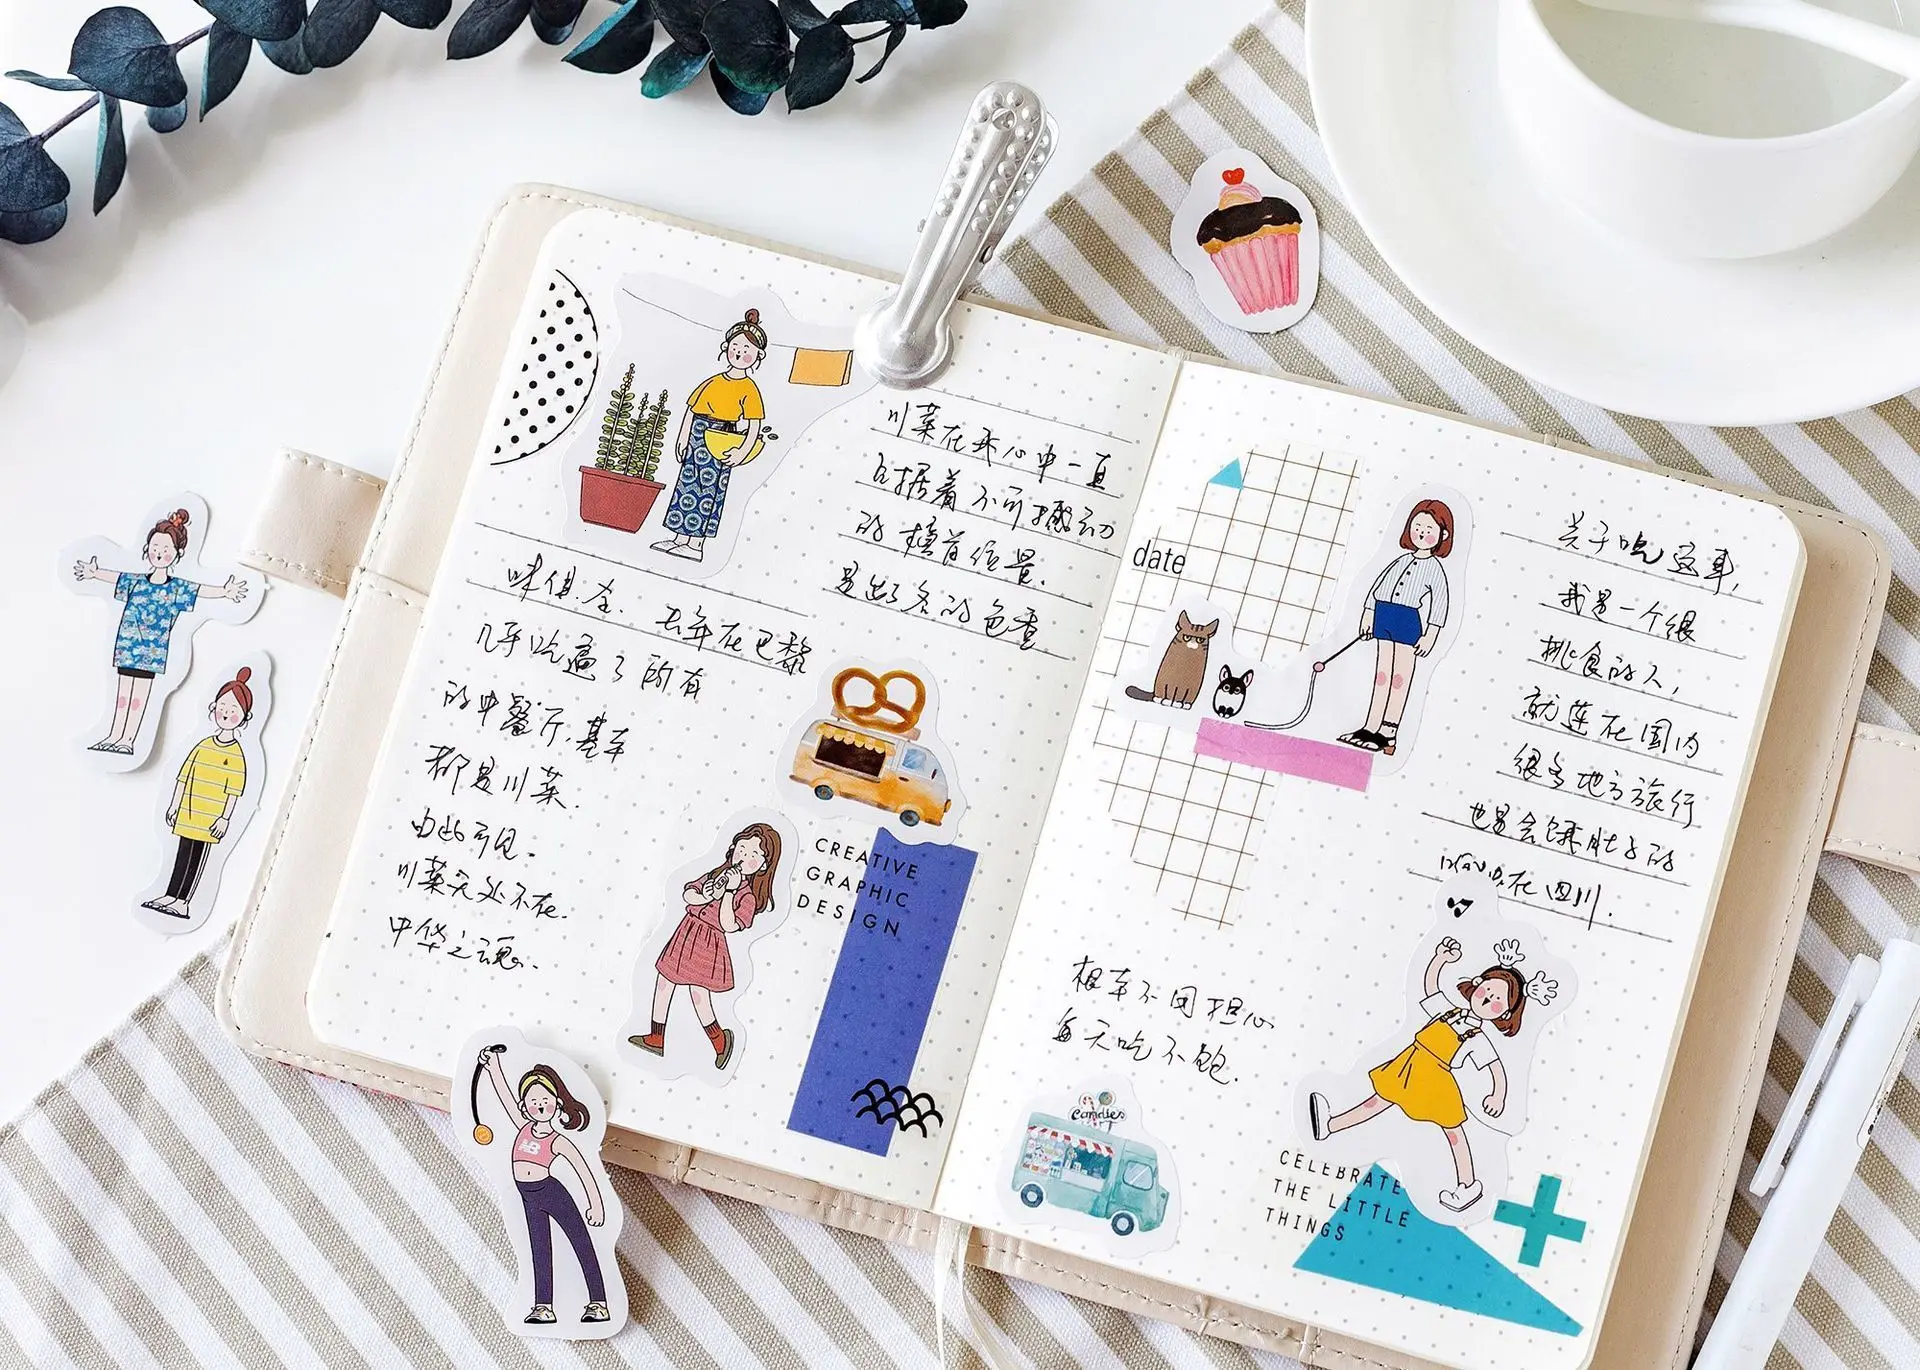 川菜在我心中一直
占据着不可撼动
的榜首位置.
是出了名的色香
味俱全. 去年在巴黎
几乎吃遍了所有
的中餐厅.基本
都是川菜.
由此可见.
川菜无处不在.
中华之魂.
CREATIVE
GRAPHIC
DESIGN
date
关于吃这事,
我是一个很
挑食的人,
就连在国内
很多地方旅行
也是会饿肚子的
在四川.
根本不用担心
每天吃不饱.
candies
CELEBRATE
THE LITTLE
THINGS
NB